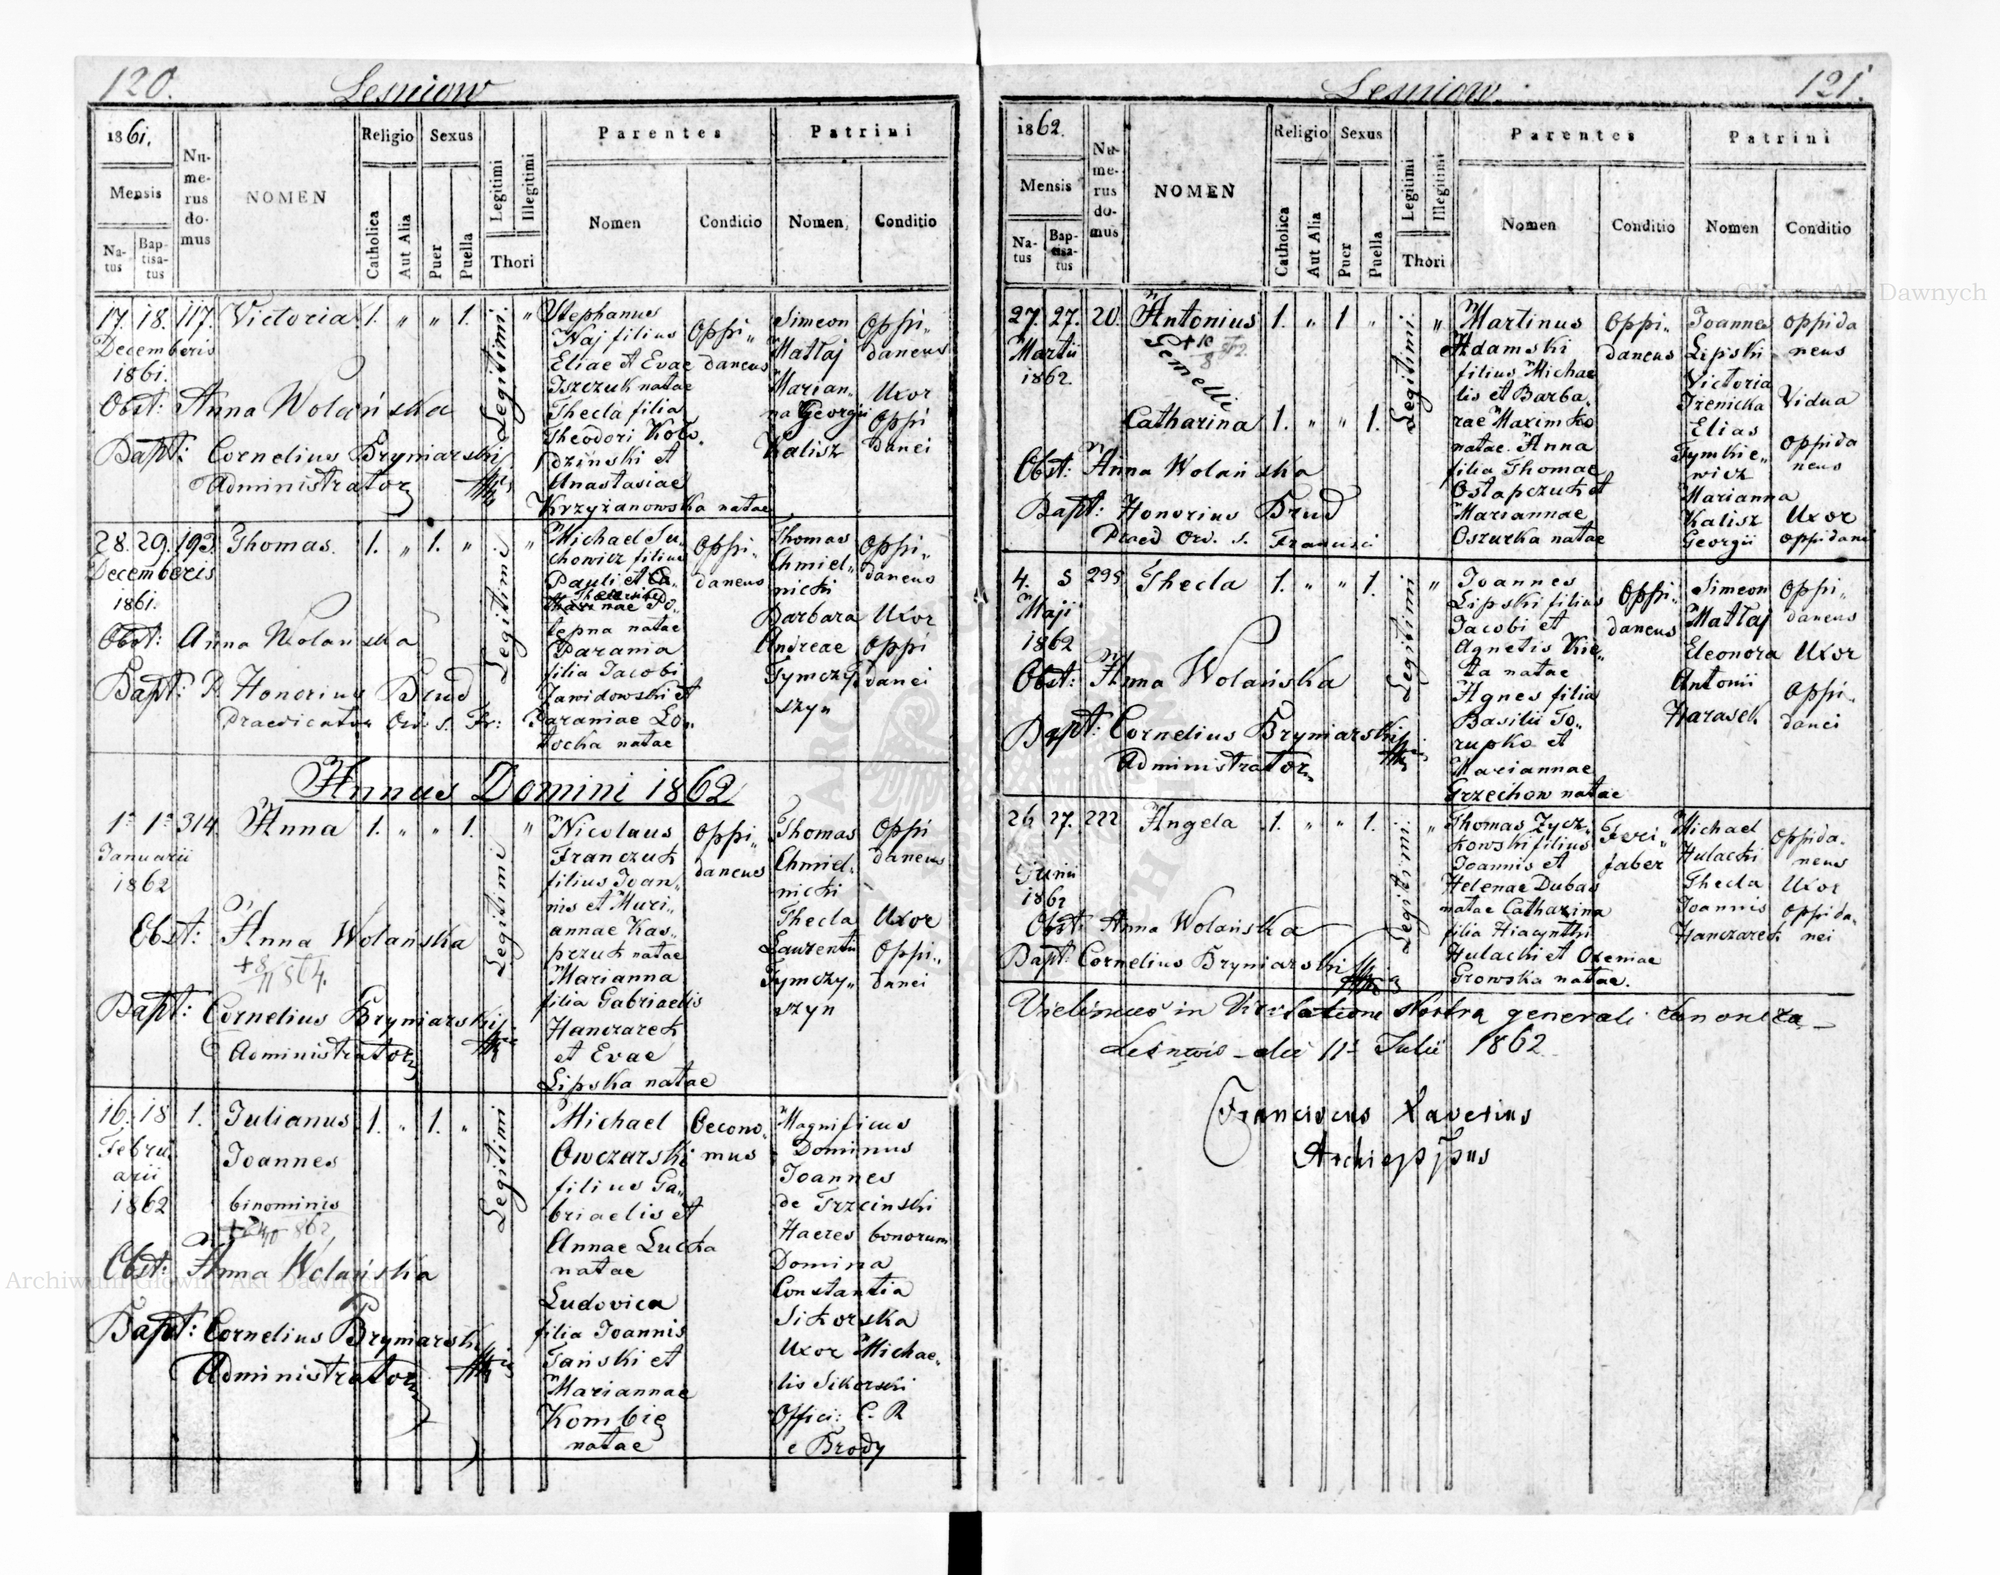 120.
Lesniow
1861.
Mensis
Na-
tus
Bap-
tisa-
tus
Nu-
me-
rus
do-
mus
NOMEN
Religio
Catholica
Aut Alia
Sexus
Puer
Puella
Legitimi
Illegitimi
Thori
Parentes
Nomen
Conditio
Patrini
Nomen
Conditio
17. 18. 117. Victoria 1. " " 1. "
Decembris
1861.
Obst: Anna Wolańska
Bapt: Cornelius Bryniarski
Administrator
Legitimi.
Stephanus
Naj filius
Eliae et Evae
Iszczuk natae
Thecla filia
Theodori Kolo-
dzinski et
Anastasiae
Krzyżanowska natae
Oppi„
daneus
Simeon
Matłaj
Marian„
na Georgii
Kalisz
Oppi„
daneus
Uxor
Oppi
danei
28. 29. 193. Thomas. 1. " 1. " "
Decembris
1861.
Obst: Anna Wolanska
Bapt: P. Honorius Brud
Praedicator Ord. S. Fr:
Legitimi
Michael Su„
chowicz filius
Pauli et
natae
Parania
filia Jacobi
Zawidowski et
Paraniae Lo„
tocka natae
Oppi„
daneus
Thomas
Chmiel„
nicki
Barbara
Andreae
Tymczy
szyn
Oppi„
daneus
Uxor
Oppi
danei
Annus Domini 1862
1a 1a 314 Anna 1. " " 1. "
Januarii
1862
Obst: Anna Wolańska
Bapt: Cornelius Bryniarski
Administrator
Legitimi
Nicolaus
Franczuk
filius Joan„
nis et Mari„
annae Kas„
przuk natae
Marianna
filia Gabriaelis
Hanczarek
et Evae
Lipska natae
Oppi„
daneus
Thomas
Chmiel„
nicki
Thecla
Laurentii
Tymczy„
szyn
Oppi
daneus
Uxor
Oppi„
danei
16. 18 1. Julianus 1. " 1. "
Febru
arii
1862
Joannes
binominis
Obst: Anna Wolańska
Bapt: Cornelius Bryniarski
Administrator
Legitimi
Michael
Owczarski
filius Ga„
briaelis et
Annae Lucka
natae
Ludovica
filia Joannis
Tański et
Mariannae
Kombię
natae
Oecono„
mus
Magnificus
Dominus
Joannes
de Trzcinski
Haeres bonorum
Domina
Constantia
Sikorska
Uxor Michae„
lis Sikorski
Offici: C. R
e Brody
121.
Lesniow.
1862.
Mensis
Na-
tus
Bap-
tisa-
tus
Nu-
me-
rus
do-
mus
NOMEN
Religio
Catholica
Aut Alia
Sexus
Puer
Puella
Legitimi
Illegitimi
Thori
Parentes
Nomen
Conditio
Patrini
Nomen
Conditio
27. 27. 20. Antonius 1. " 1 " "
Martii
1862.
Gemelli
Catharina 1. " " 1.
Obst: Anna Wolańska
Bapt: Honorius Brud
Praed Ord. S. Francisci
Legitimi.
Martinus
Adamski
filius Michae
lis et Barba„
rae Maximko
natae. Anna
filia Thomae
Ostapczuk et
Mariannae
Oszurka natae
Oppi„
daneus
Joannes
Lipski
Victoria
Irenicka
Elias
Tymkie„
wicz
Marianna
Kalisz
Georgii
oppida
neus
Vidua
oppida
neus
Uxor
oppidani
4. 5 295 Thecla 1. " " 1. "
Maji
1862
Obst: Anna Wolańska
Bapt: Cornelius Bryniarski
Administrator
Legitimi
Joannes
Lipski filius
Jacobi et
Agnetis Kie„
ta natae
Agnes filia
Basilii To„
rupko et
Mariannae
Grzechow natae
Oppi„
daneus
Simeon
Matłaj
Eleonora
Antonii
Harasek
Oppi„
daneus
Uxor
Oppi„
danei
26 27. 222 Angela 1. " " 1. "
Junii
1862
Obst: Anna Wolańska
Bapt: Cornelius Bryniarski
Legitimi.
Thomas Zycz„
kowski filius
Joannis et
Helenae Dubas
natae Catharina
filia Hiacynthi
Hulacki et Oxeniae
Growska natae.
Feri„
faber
Michael
Hulacki
Thecla
Joannis
Hanczarek
Oppida„
neus
Uxor
oppida„
nei
Vidimus in Visitatione Nostra generali canonica
die 11a Julii 1862
Franciscus Xaverius
Archieppus
Archiwum Główne Akt Dawnych
Archiwum Główne Akt Dawnych